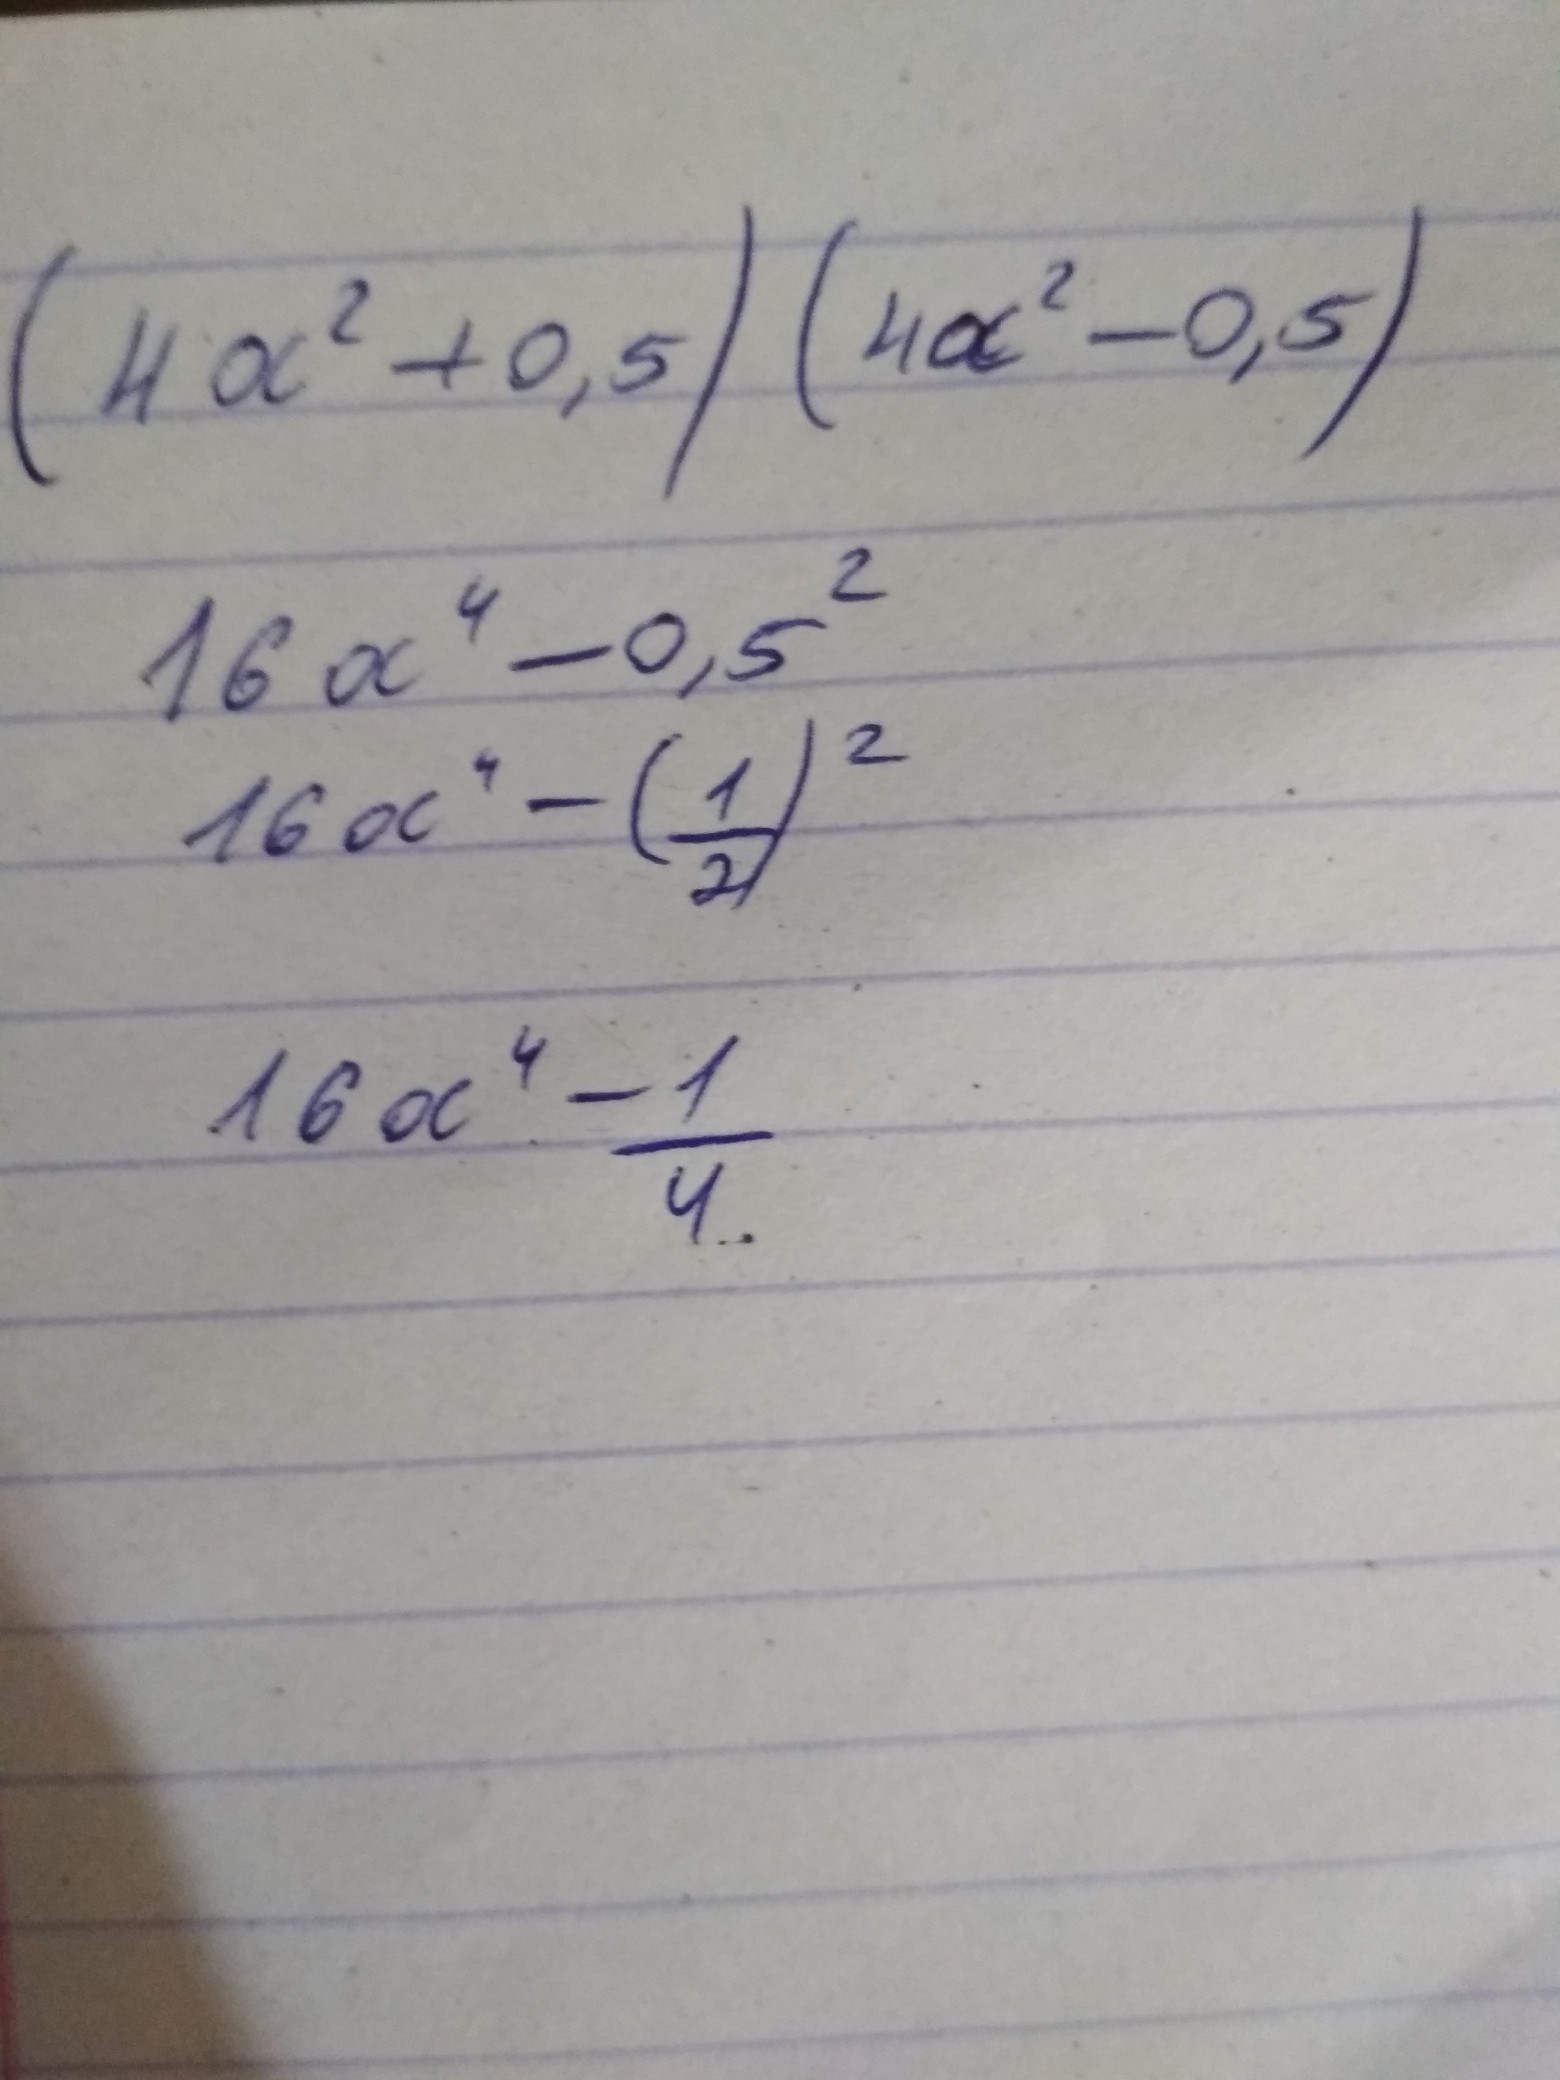 (4a² + 0,5) (4a² - 0,5)
16a⁴ - 0,5²
16a⁴ - (1/2)²
16a⁴ - 1/4